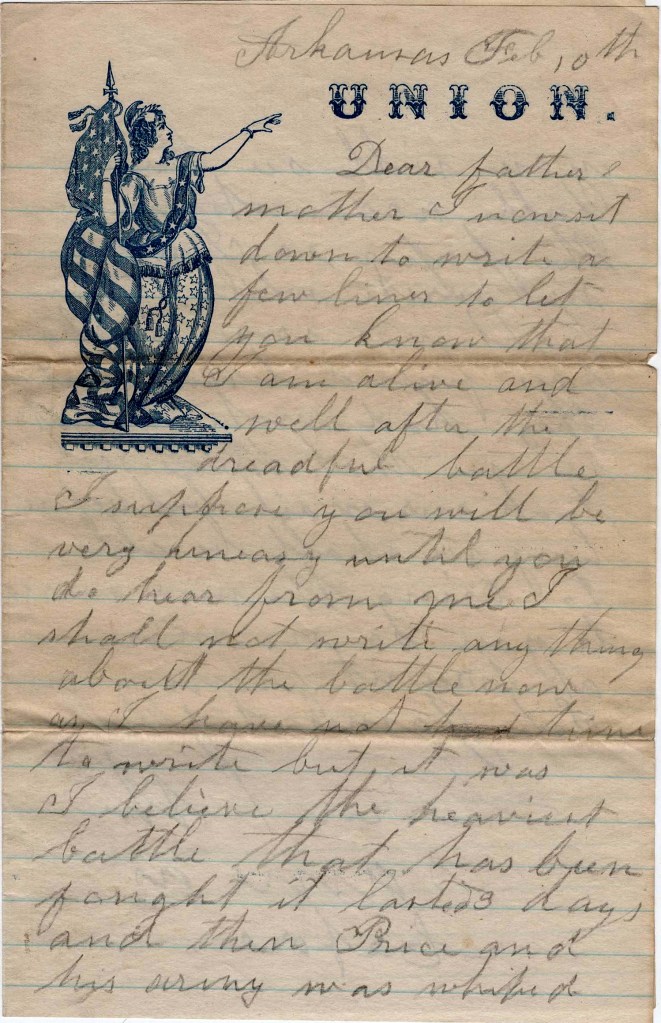 Arkansas Feb 10th
UNION.
Dear father &
mother I now sit
down to write a
few lines to let
you know that
I am alive and
well after the
dreadful battle
I suppose you will be
very uneasy until you
do hear from me I
shall not write any thing
about the battle now
as I have not had time
to write but it was
I believe the heaviest
battle that has been
fought it lasted 3 days
and then Price and
his army was whiped